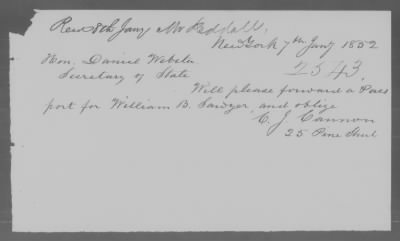 Recd 8th Jany Mr
New York 7th Jany 1852
Hon. Daniel Webster
2543.
Secretary of State
Will please forward a Pass
port for William B. Sawyer, and oblige
C. J. Cannon
25 Pine Street